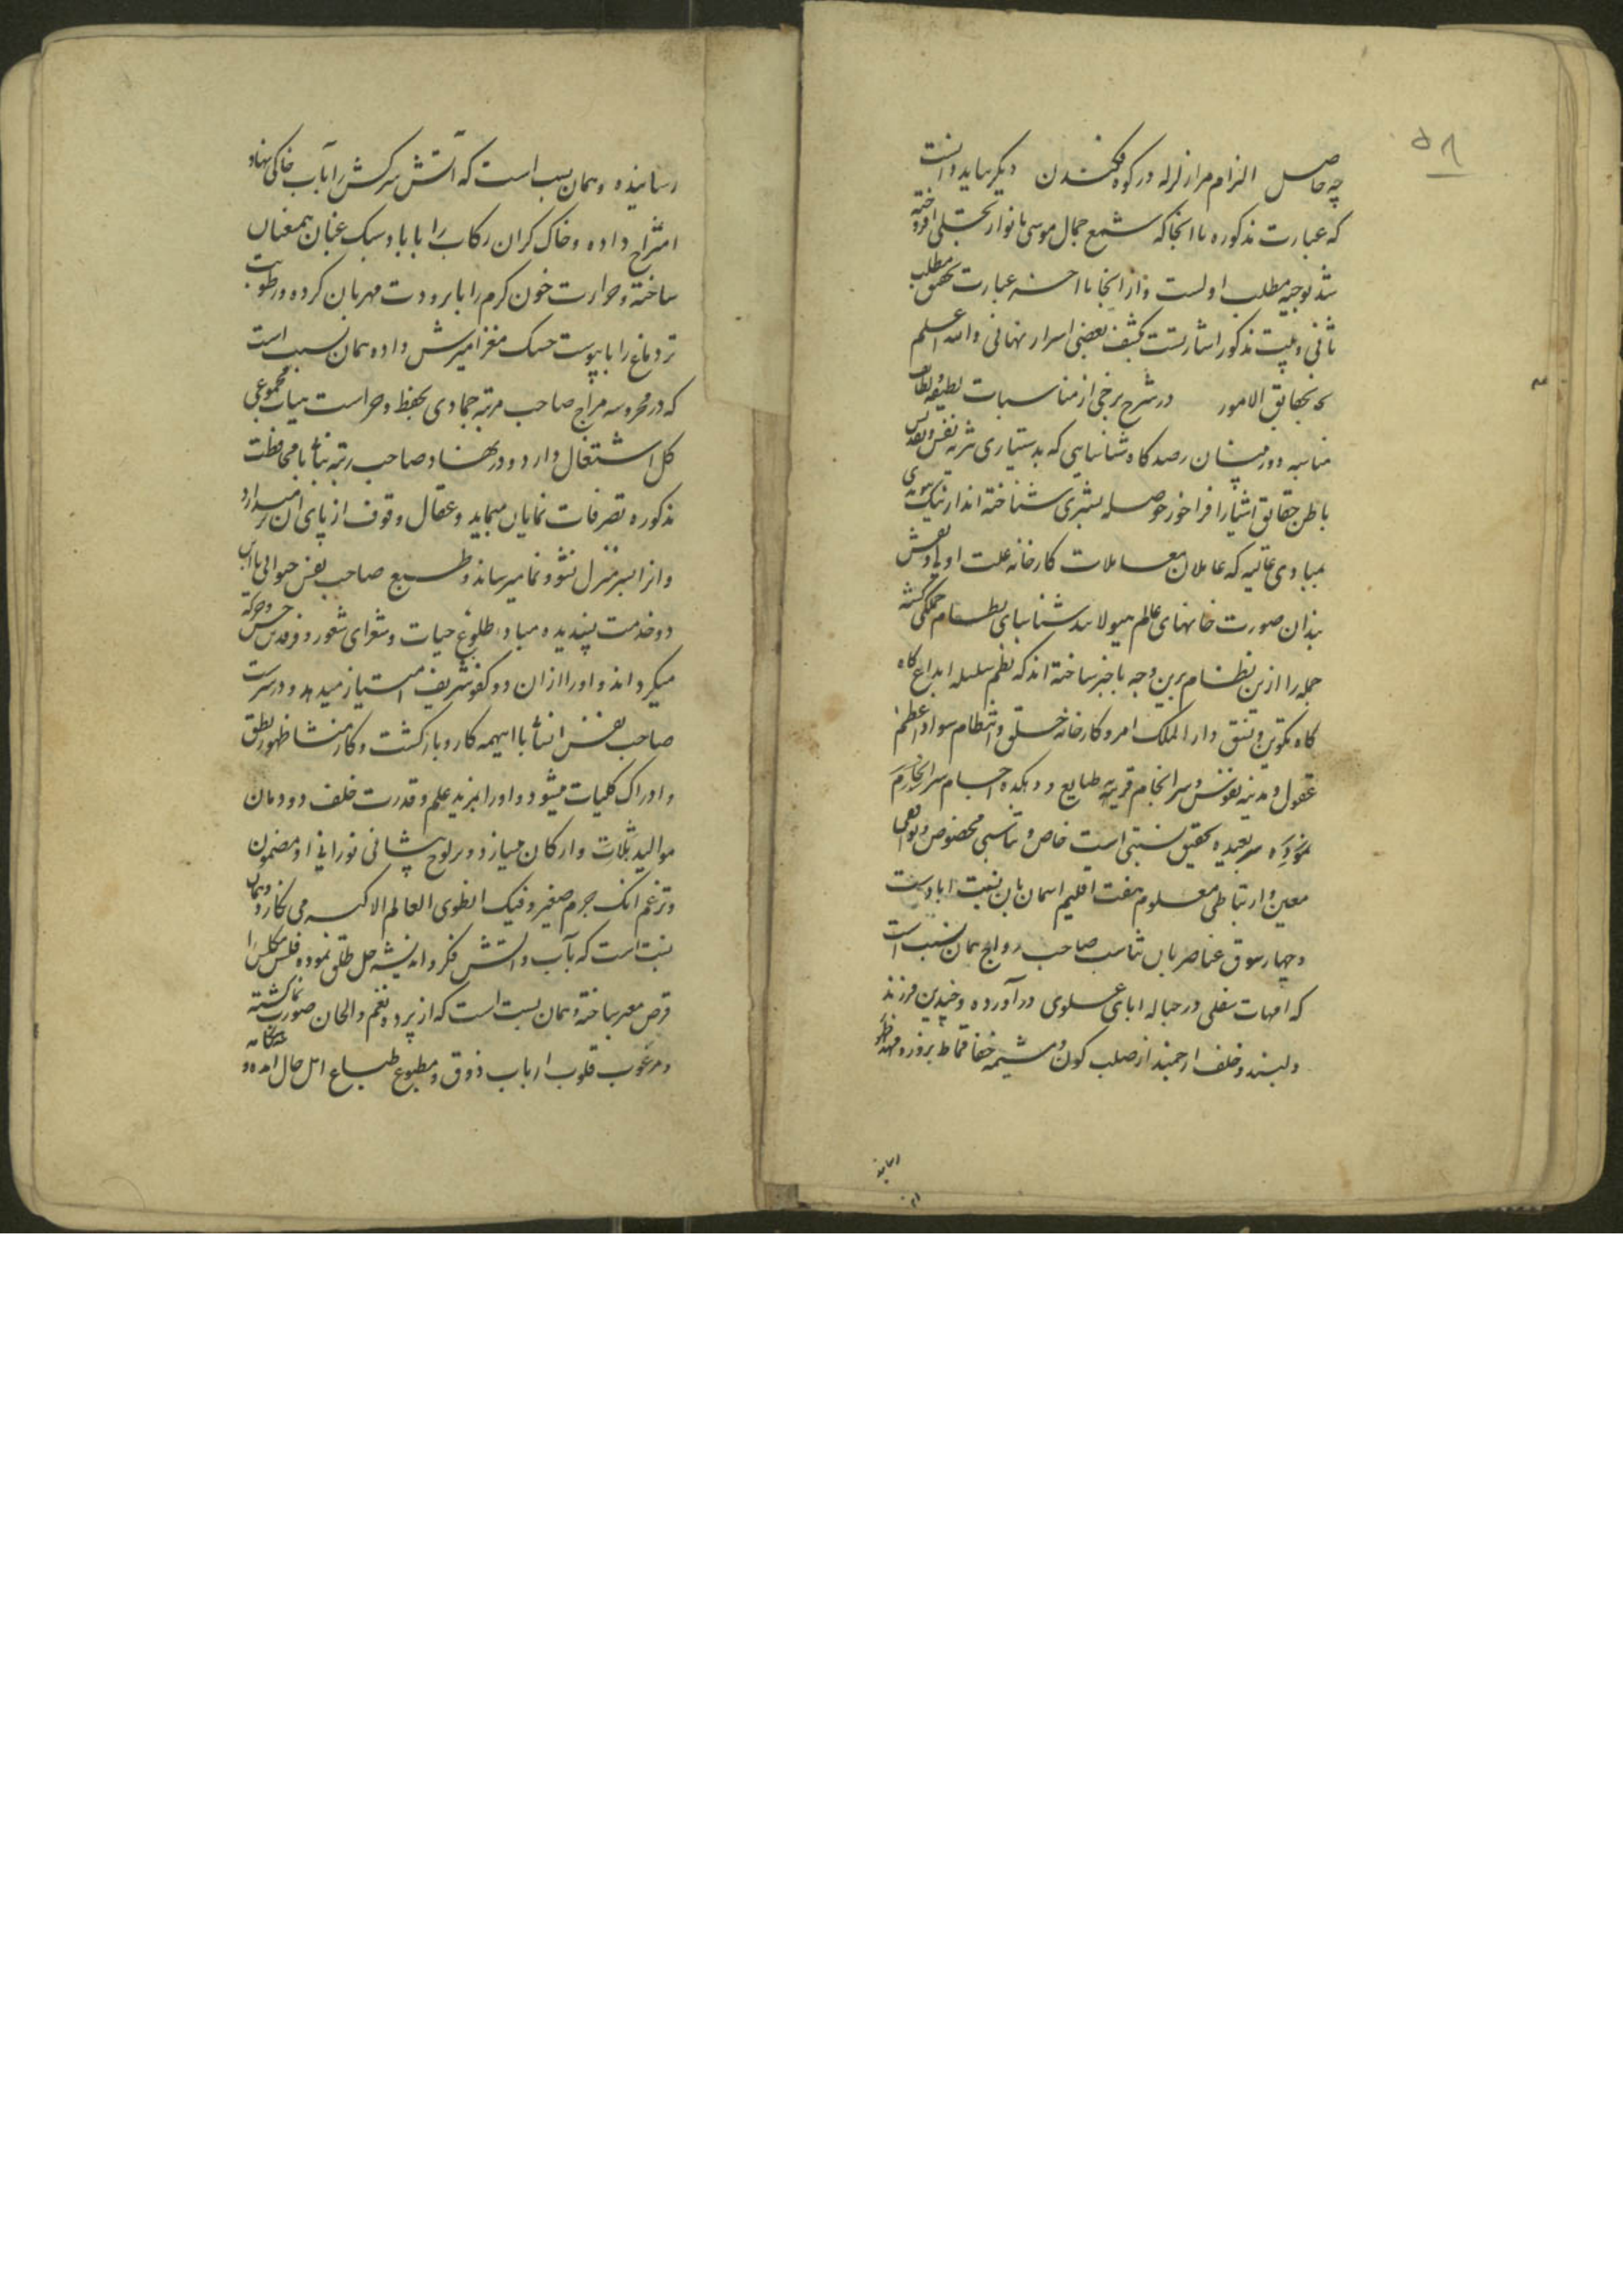 ۵۸
چه حاصل الزام مرا زلزله در کوه فکندن دیگر باید دانست
که عبارت مذکوره تا انجا که شمع جمال موسی بانوار تجلی افروخته
شد توجیه مطلب اولست و از انجا تا اخر عبارت تحقیق مطلب
ثانی و بیت مذکور اشارتست بکشف بعضی اسرار نهانی والله اعلم
بحقایق الامور در شرح برخی از مناسبات لطیفه
مناسبه دوربینان رصدگاه شناسایی که بدستیاری نفس
باطن حقایق اشیا را فراخور حوصله بشری شناخته اند از نیک
بمبادی عالیه که عاملان معاملات کارخانه علت اولی و نقش
بندان صورت خانهای عالم هیولا شناسای نظام جملگی گشته
جمله را ازین نظام برین وجه باخبر ساخته اند که نظم سلسله ابداع گاه
گاه تکوین و نسق دار الملک امر و کارخانه خلق و انتظام سواد اعظم
عقول و مدینه نفوس و سرانجام قریه طبایع و دهکده اجسام سرانجام
تحقیق نسبتی است خاص و تناسبی مخصوص و
معین و ارتباطی معلوم هفت اقلیم اسمان بان نسبت ابادست
و چهار سوق عناصر بان تناسب صاحب رواج همان نسبت است
که امهات سفلی در حباله ابای علوی در آورده و چندین فرزند
دلبند و خلف ارجمند از صلب کون و مشیمه خفا بقماط بروز و مهد ظهور
رسانیده و همان نسبت است که آتش سرکش را بآب خاکی نهاد
امتزاج داده و خاک گران رکاب را با باد سبک عنان همعنان
ساخته و حرارت خون گرم را با برودت مهربان کرده و رطوبت
تر دماغ را با یبوست خشک مغز امیزش داده همان نسبت است
که در محروسه مزاج صاحب مرتبه جمادی بحفظ و حراست هیات مجموعی
کل اشتغال دارد و در نهاد صاحب رتبه نباتی با محافظت
مذکوره تصرفات نمایان مینماید و عقال وقوف از پای ان برمیدارد
و انرا بسر منزل نشو و نما میرساند و طبع صاحب نفس حیوانی با این
دو خدمت پسندیده مبادی طلوع حیات و شعرای شعور و فرقدین حس و حرکة
میگرداند و او را از ان دو کفو شریف امتیاز میدهد و در سرشت
صاحب نفس انسانی با اینهمه کار و بار گشت و کار منشا ظهور نطق
و ادراک کلیات میشود و او را بمزید علم و قدرت خلف دودمان
موالید ثلاث و ارکان میسازد و بر لوح پیشانی نورانی او مضمون
وتزعم انک جرم صغیر وفیک انطوی العالم الاکبر می نگارد و همان
نسبت است که بآب و اتش فکر و اندیشه حل طلق نموده فلس مکلس را
قرص مهر ساخته و همان نسبت است که از پرده نغم و الحان صورت نما گشته
و مرغوب قلوب ارباب ذوق و مطبوع طباع اهل حال امده و